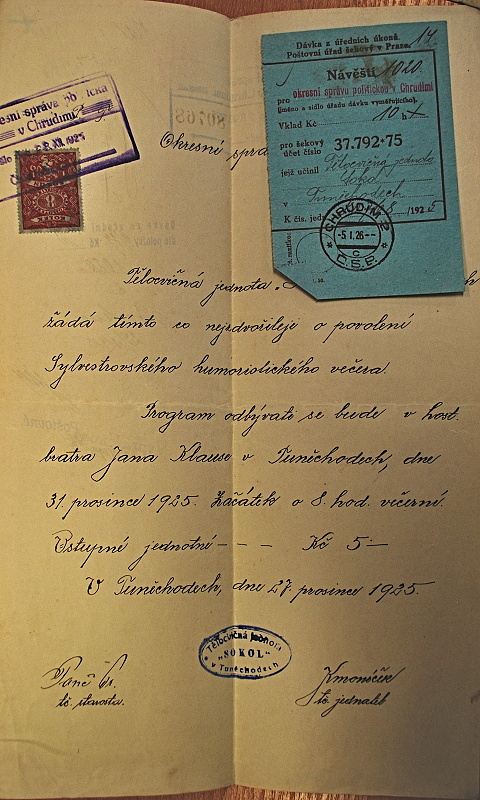 okresní správa politická
v Chrudimi
8
KOLEK
Dávka z úředních úkonů.
Poštovní úřad šekový v Praze.
14
Návěští 1020
pro okresní správu politickou v Chrudimi
(jméno a sídlo úřadu dávku vyměřujícího).
Vklad Kč 10 h
pro šekový
účet číslo 37.792*75
jejž učinil Tělocvičná jednota
Sokol
v Tuněchodech
K čís. jed. 1925
CHRUDIM 2
-5.I.26--
c
Č.S.P.
Okresní sprá
Tělocvičná jednota „S
žádá tímto co nejzdvořileji o povolení
Sylvestrovského humoristického večera.
Program odbývati se bude v host.
bratra Jana Klause v Tuněchodech, dne
31. prosince 1925. Začátek o 8. hod. večerní.
Vstupné jednotné — — — Kč 5·—
V Tuněchodech, dne 27. prosince 1925.
Tělocvičná Jednota
"SOKOL"
v Tuněchodech
tč. starosta.
tč. jednatel